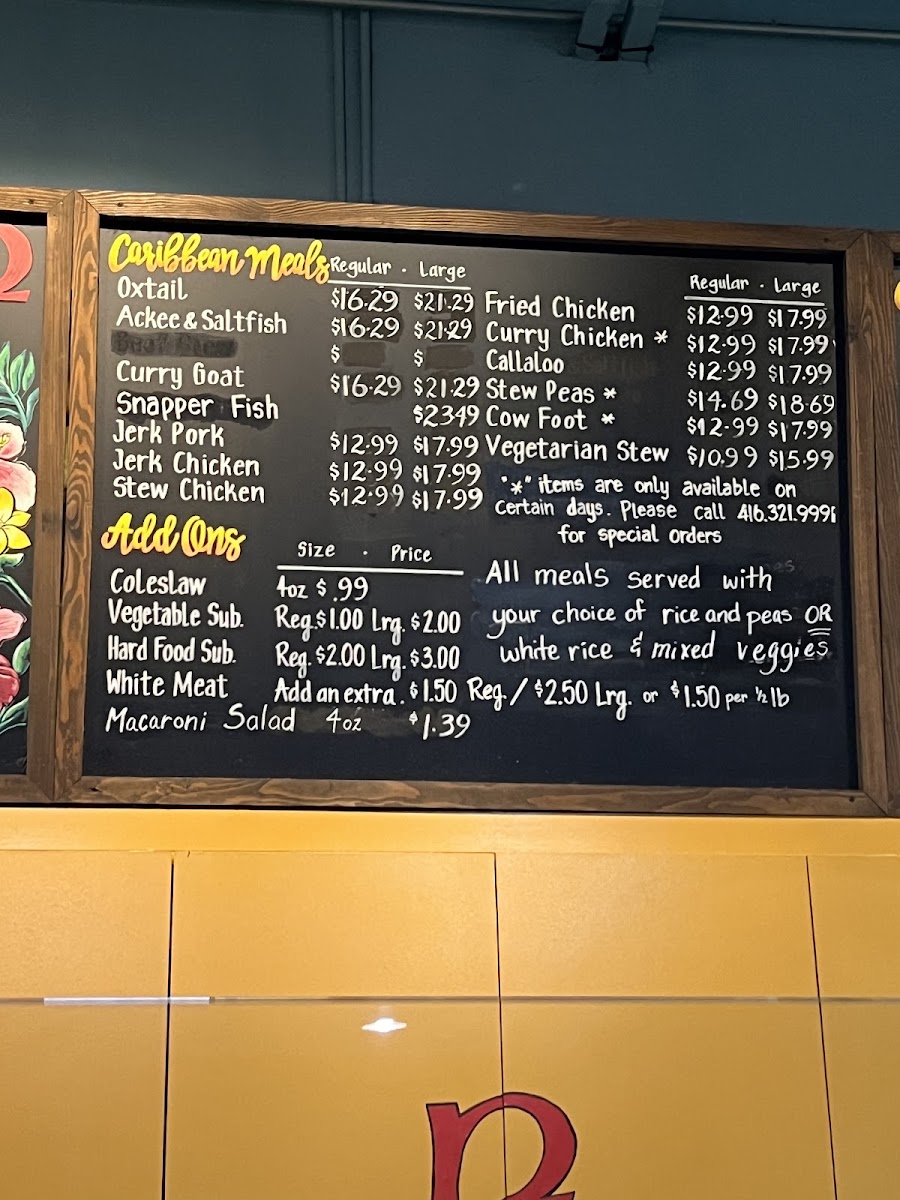 Caribbean Meals Regular · Large
Oxtail $16.29 $21.29
Ackee & Saltfish $16.29 $21.29
$ $
Curry Goat $16.29 $21.29
Snapper Fish $23.49
Jerk Pork $12.99 $17.99
Jerk Chicken $12.99 $17.99
Stew Chicken $12.99 $17.99
Regular · Large
Fried Chicken $12.99 $17.99
Curry Chicken * $12.99 $17.99
Callaloo $12.99 $17.99
Stew Peas * $14.69 $18.69
Cow Foot * $12.99 $17.99
Vegetarian Stew $10.99 $15.99
"*" items are only available on
certain days. Please call 416.321.999
for special orders
Add Ons Size · Price
Coleslaw 4oz $.99
Vegetable Sub. Reg. $1.00 Lrg. $2.00
Hard Food Sub. Reg. $2.00 Lrg. $3.00
White Meat Add an extra. $1.50 Reg. / $2.50 Lrg. or $1.50 per ½ lb
Macaroni Salad 4oz $1.39
All meals served with
your choice of rice and peas OR
white rice & mixed veggies